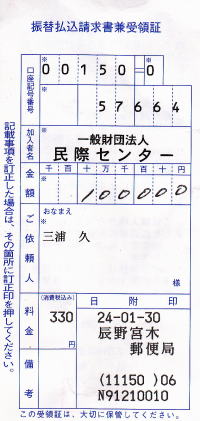 振替払込請求書兼受領証
口座記号番号
00150=0
57664
加入者名
一般財団法人
民際センター
金額
千百十万千百十円
1000000
ご依頼人
おなまえ
三浦 久
様
料金
(消費税込み)
330
円
日附印
24-01-30
辰野宮木
郵便局
(11150 )06
N91210010
備考
記載事項を訂正した場合は、その箇所に訂正印を押してください。
この受領証は、大切に保管してください。